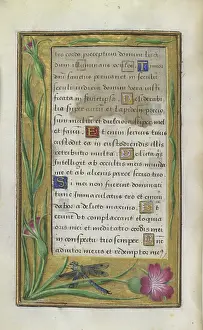 dum illuminans oculos Ti
mor dñi sanctus permanens in seculũ
seculi iudicia domini vera iusti
ficata in semetipsa Desiderabi
lia super aurum et lapidem precio
sum multum et dulciora super mel
et favum Etenim servus tuus
custodit ea in custodiendis illis
retributio multa Delicta quis
intelligit ab occultis meis munda
me et ab alienis parce servo tuo
Si mei non fuerint dominati
tunc immaculatus ero et emun
dabor a delicto maximo Et
erunt ut complaceant eloquia
oris mei et meditatio cordis mei
in conspectu tuo semper Dñe
adiutor meus et redemptor meꝰ